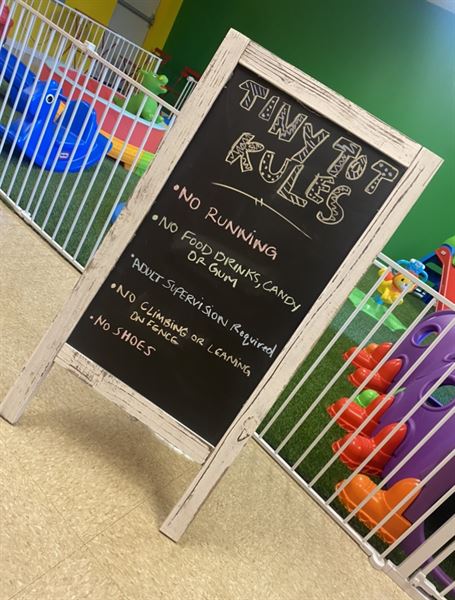 TINY TOT
RULES
• NO RUNNING
• NO FOOD DRINKS, CANDY
OR GUM
• ADULT SUPERVISION Required
• NO CLIMBING OR LEANING
ON FENCE
• NO SHOES